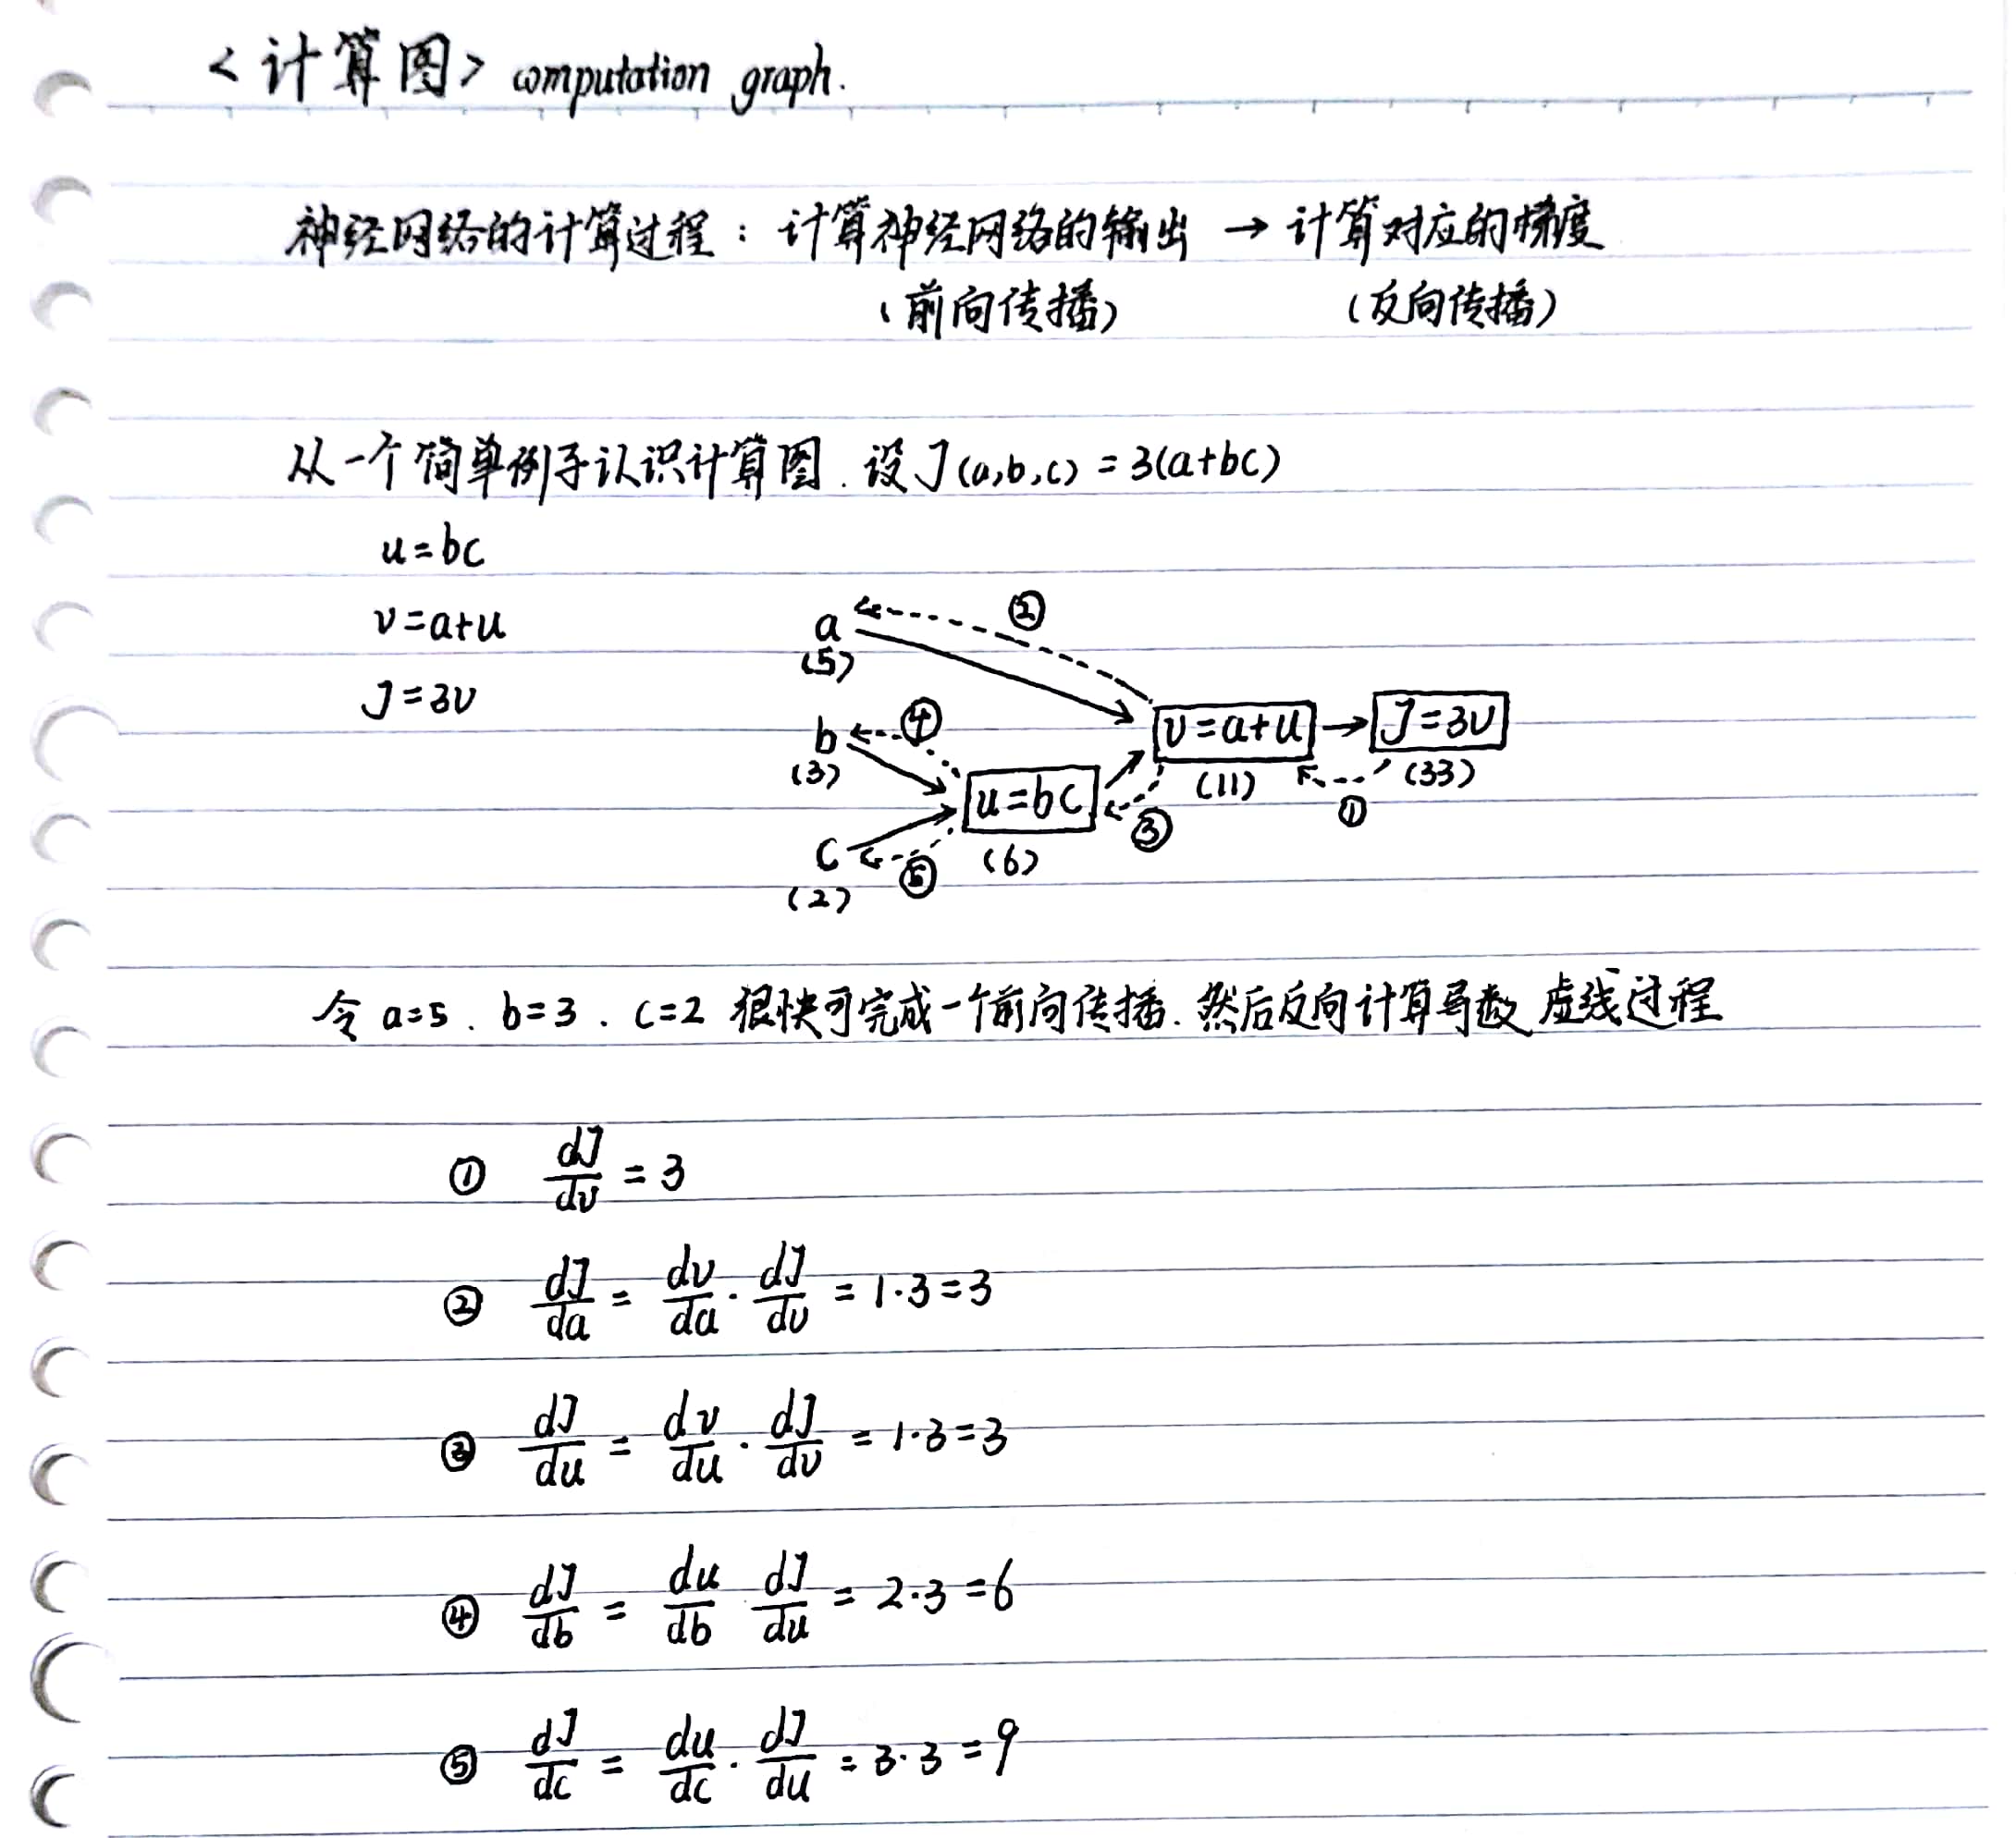 <计算图> computation graph.
神经网络的计算过程：计算神经网络的输出 → 计算对应的梯度
(前向传播) (反向传播)
从一个简单例子认识计算图. 设 J(a,b,c) = 3(a+bc)
u=bc
v=a+u
J=3v
②
a
(5)
④
b
(3)
v=a+u → J=3v
(11) (33)
①
u=bc
③
c
(6)
⑤
(2)
令 a=5. b=3. c=2 很快可完成一个前向传播. 然后反向计算导数 虚线过程
① dJ/dv = 3
② dJ/da = dv/da · dJ/dv = 1·3=3
③ dJ/du = dv/du · dJ/dv = 1·3=3
④ dJ/db = du/db · dJ/du = 2·3=6
⑤ dJ/dc = du/dc · dJ/du = 3·3=9